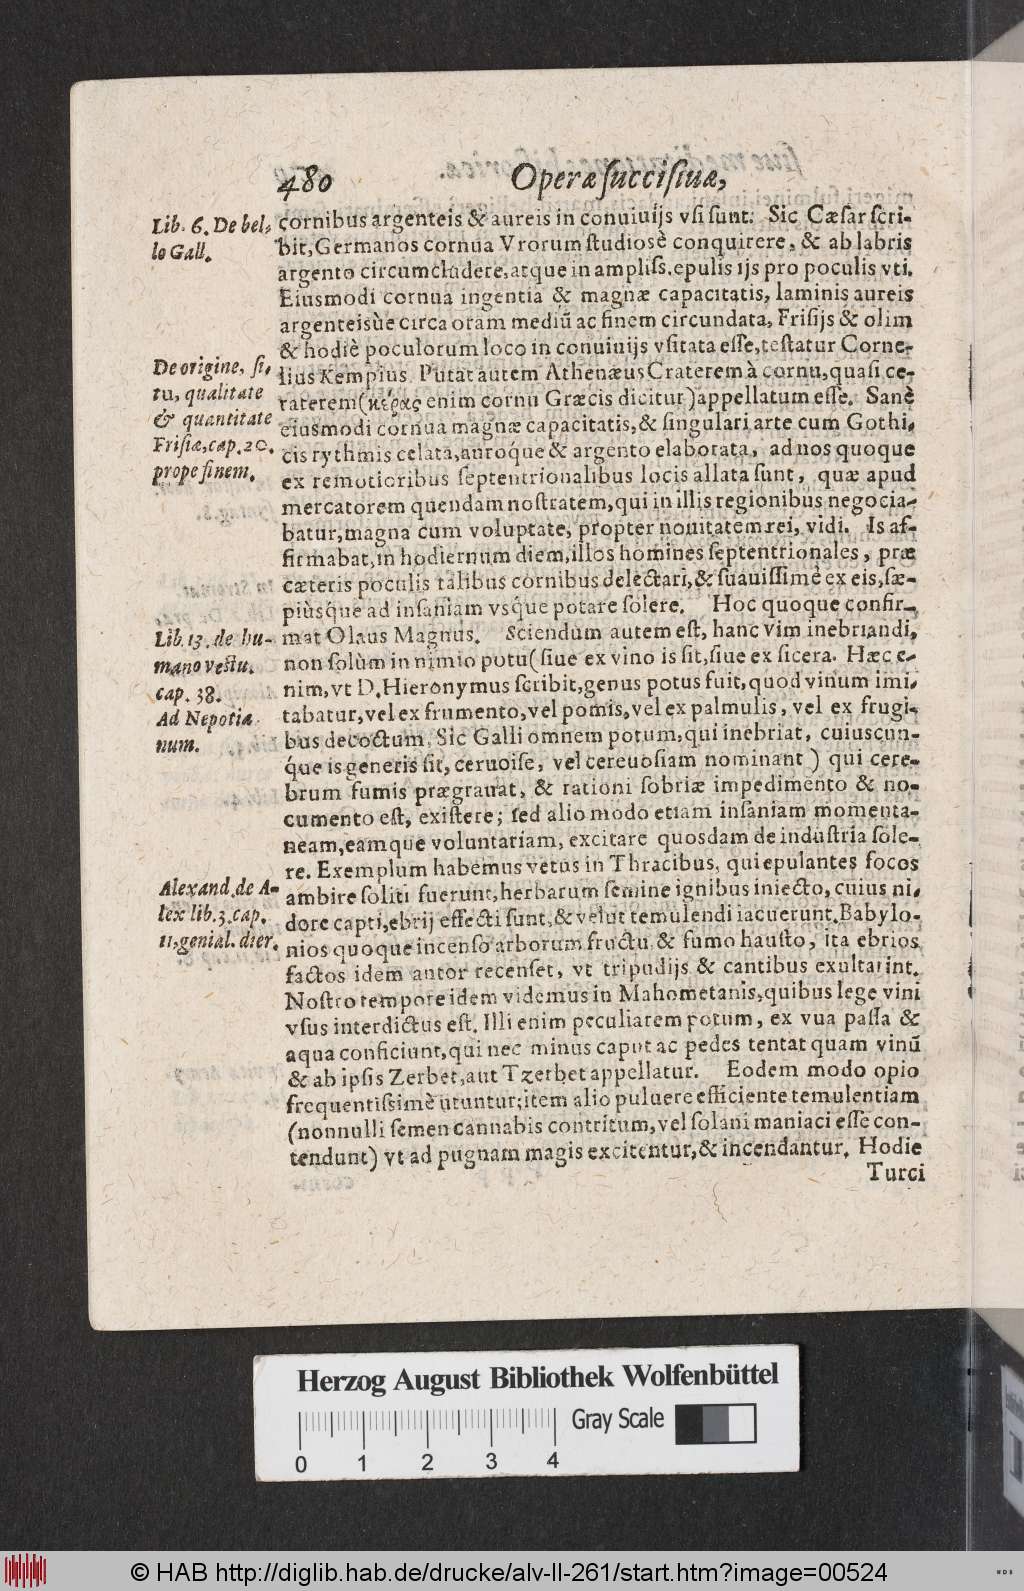 480 Operæ ſucciſiuæ,
Lib. 6. De bel-
lo Gall.
cornibus argenteis & aureis in conuiuijs vſi ſunt. Sic Cæſar ſcri-
bit, Germanos cornua Vrorum ſtudiosè conquirere, & ab labris
argento circumcludere, atque in ampliſs. epulis ijs pro poculis vti.
Eiusmodi cornua ingentia & magnæ capacitatis, laminis aureis
argenteisùe circa oram mediũ ac finem circundata, Friſijs & olim
& hodiè poculorum loco in conuiuijs vſitata eſſe, teſtatur Corne-
De origine, ſi-
tu, qualitate
& quantitate
Friſiæ, cap. 20.
prope finem.
lius Kempius. Putat autem Athenæus Craterem à cornu, quaſi ce-
raterem (κέρας enim cornu Græcis dicitur) appellatum eſſe. Sanè
eiusmodi cornua magnæ capacitatis, & ſingulari arte cum Gothi-
cis rythmis celata, auróque & argento elaborata, ad nos quoque
ex remotioribus ſeptentrionalibus locis allata ſunt, quæ apud
mercatorem quendam noſtratem, qui in illis regionibus negocia-
batur, magna cum voluptate, propter nouitatem rei, vidi. Is af-
firmabat, in hodiernum diem, illos homines ſeptentrionales, præ
cæteris poculis talibus cornibus delectari, & ſuauiſſimè ex eis, ſæ-
piùsq́ue ad inſaniam vsq́ue potare ſolere. Hoc quoque confir-
Lib. 13. de hu-
mano vectu.
cap. 38.
Ad Nepotia
num.
mat Olaus Magnus. Sciendum autem eſt, hanc vim inebriandi,
non ſolùm in nimio potu (ſiue ex vino is ſit, ſiue ex ſicera. Hæc e-
nim, vt D. Hieronymus ſcribit, genus potus fuit, quod vinum imi-
tabatur, vel ex frumento, vel pomis, vel ex palmulis, vel ex frugi-
bus decoctum. Sic Galli omnem potum, qui inebriat, cuiuscun-
q́ue is generis ſit, ceruoiſe, vel cereuosiam nominant) qui cere-
brum fumis prægrauat, & rationi ſobriæ impedimento & no-
cumento eſt, exiſtere; ſed alio modo etiam inſaniam momenta-
neam, eamque voluntariam, excitare quosdam de induſtria ſole-
re. Exemplum habemus vetus in Thracibus, qui epulantes focos
Alexand. de A-
lex lib. 3. cap.
11. genial. dier.
ambire ſoliti fuerunt, herbarum ſemine ignibus iniecto, cuius ni-
dore capti, ebrij effecti ſunt, & velut temulendi iacuerunt. Babylo-
nios quoque incenſo arborum fructu & fumo hauſto, ita ebrios
factos idem autor recenſet, vt tripudijs & cantibus exultarint.
Noſtro tempore idem videmus in Mahometanis, quibus lege vini
vſus interdictus eſt. Illi enim peculiarem potum, ex vua paſſa &
aqua conficiunt, qui nec minus caput ac pedes tentat quam vinũ
& ab ipſis Zerbet, aut Tzerbet appellatur. Eodem modo opio
frequentiſsimè utuntur; item alio puluere efficiente temulentiam
(nonnulli ſemen cannabis contritum, vel ſolani maniaci eſſe con-
tendunt) vt ad pugnam magis excitentur, & incendantur. Hodie
Turci
Herzog August Bibliothek Wolfenbüttel
Gray Scale
0 1 2 3 4
© HAB http://diglib.hab.de/drucke/alv-ll-261/start.htm?image=00524